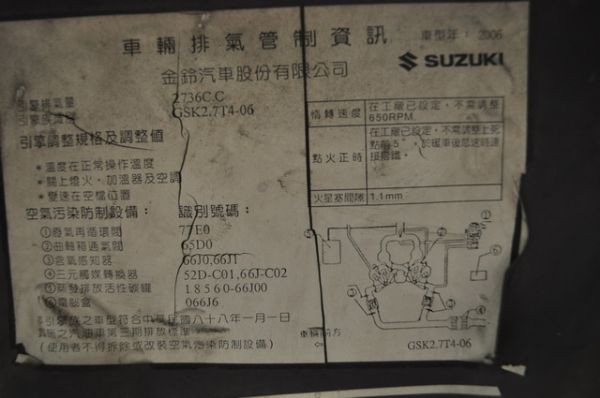 車輛排氣管制資訊
車型年：2006
SUZUKI
金鈴汽車股份有限公司
引擎排氣量 2736C.C
引擎族名稱 GSK2.7T4-06
引擎調整規格及調整值
• 溫度在正常操作溫度
• 關上燈火、加溫器及空調
• 變速在空檔位置
惰轉速度 在工廠已設定，不需調整
650RPM
點火正時 在工廠已設定，不需調整上死
點前5°，於暖車後怠速時連
接搭鐵。
火星塞間隙 1.1mm
空氣污染防制設備： 識別號碼：
①廢氣再循環閥 77E0
②曲軸箱通氣閥 65D0
③含氧感知器 66J0,66J1
④三元觸媒轉換器 52D-C01,66J-C02
⑤蒸發排放活性碳罐 18560-66J00
⑥電腦盒 066J6
引擎族之車型符合中華民國八十八年一月一日
實施之汽油車第三期排放標準
(使用者不得拆除或改裝空氣污染防制設備)
車輛前方
GSK2.7T4-06